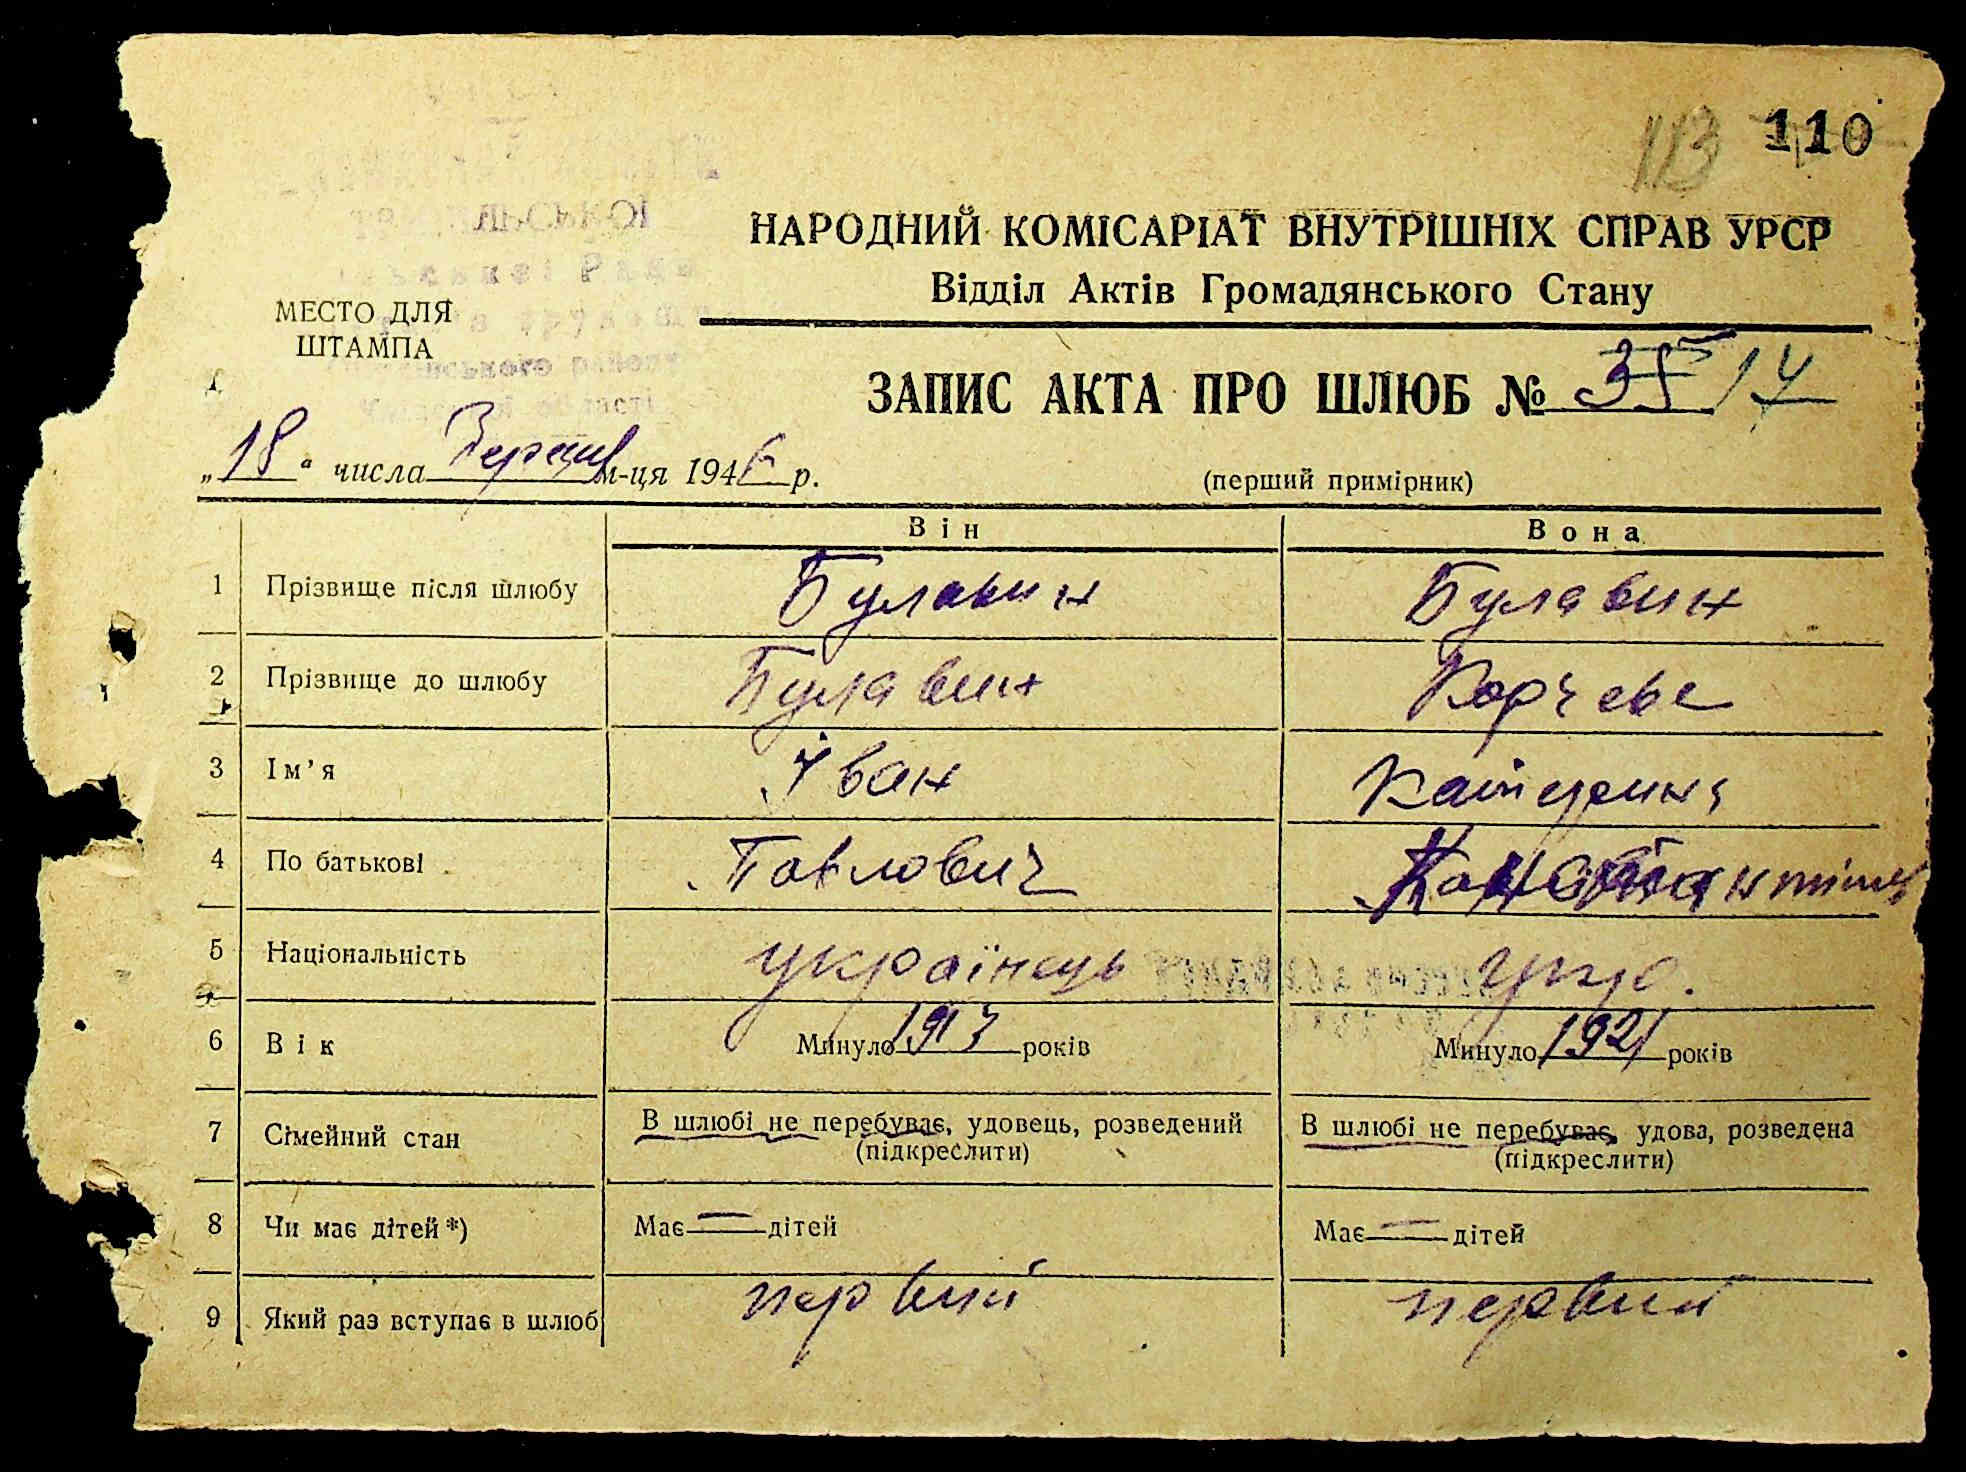 113 110
НАРОДНИЙ КОМІСАРІАТ ВНУТРІШНІХ СПРАВ УРСР
Відділ Актів Громадянського Стану
МЕСТО ДЛЯ
ШТАМПА
ЗАПИС АКТА ПРО ШЛЮБ № 35 17
„18“ числа м-ця 1946 р.
(перший примірник)
Він Вона
1 Прізвище після шлюбу Булавин Булавин
2 Прізвище до шлюбу Булавин
3 Ім'я Іван Катерина
4 По батькові Павлович
5 Національність українець укр.
6 Вік Минуло 1917 років Минуло 1921 років
7 Сімейний стан В шлюбі не перебуває, удовець, розведений В шлюбі не перебуває, удова, розведена
(підкреслити) (підкреслити)
8 Чи має дітей *) Має — дітей Має — дітей
9 Який раз вступає в шлюб первий первий